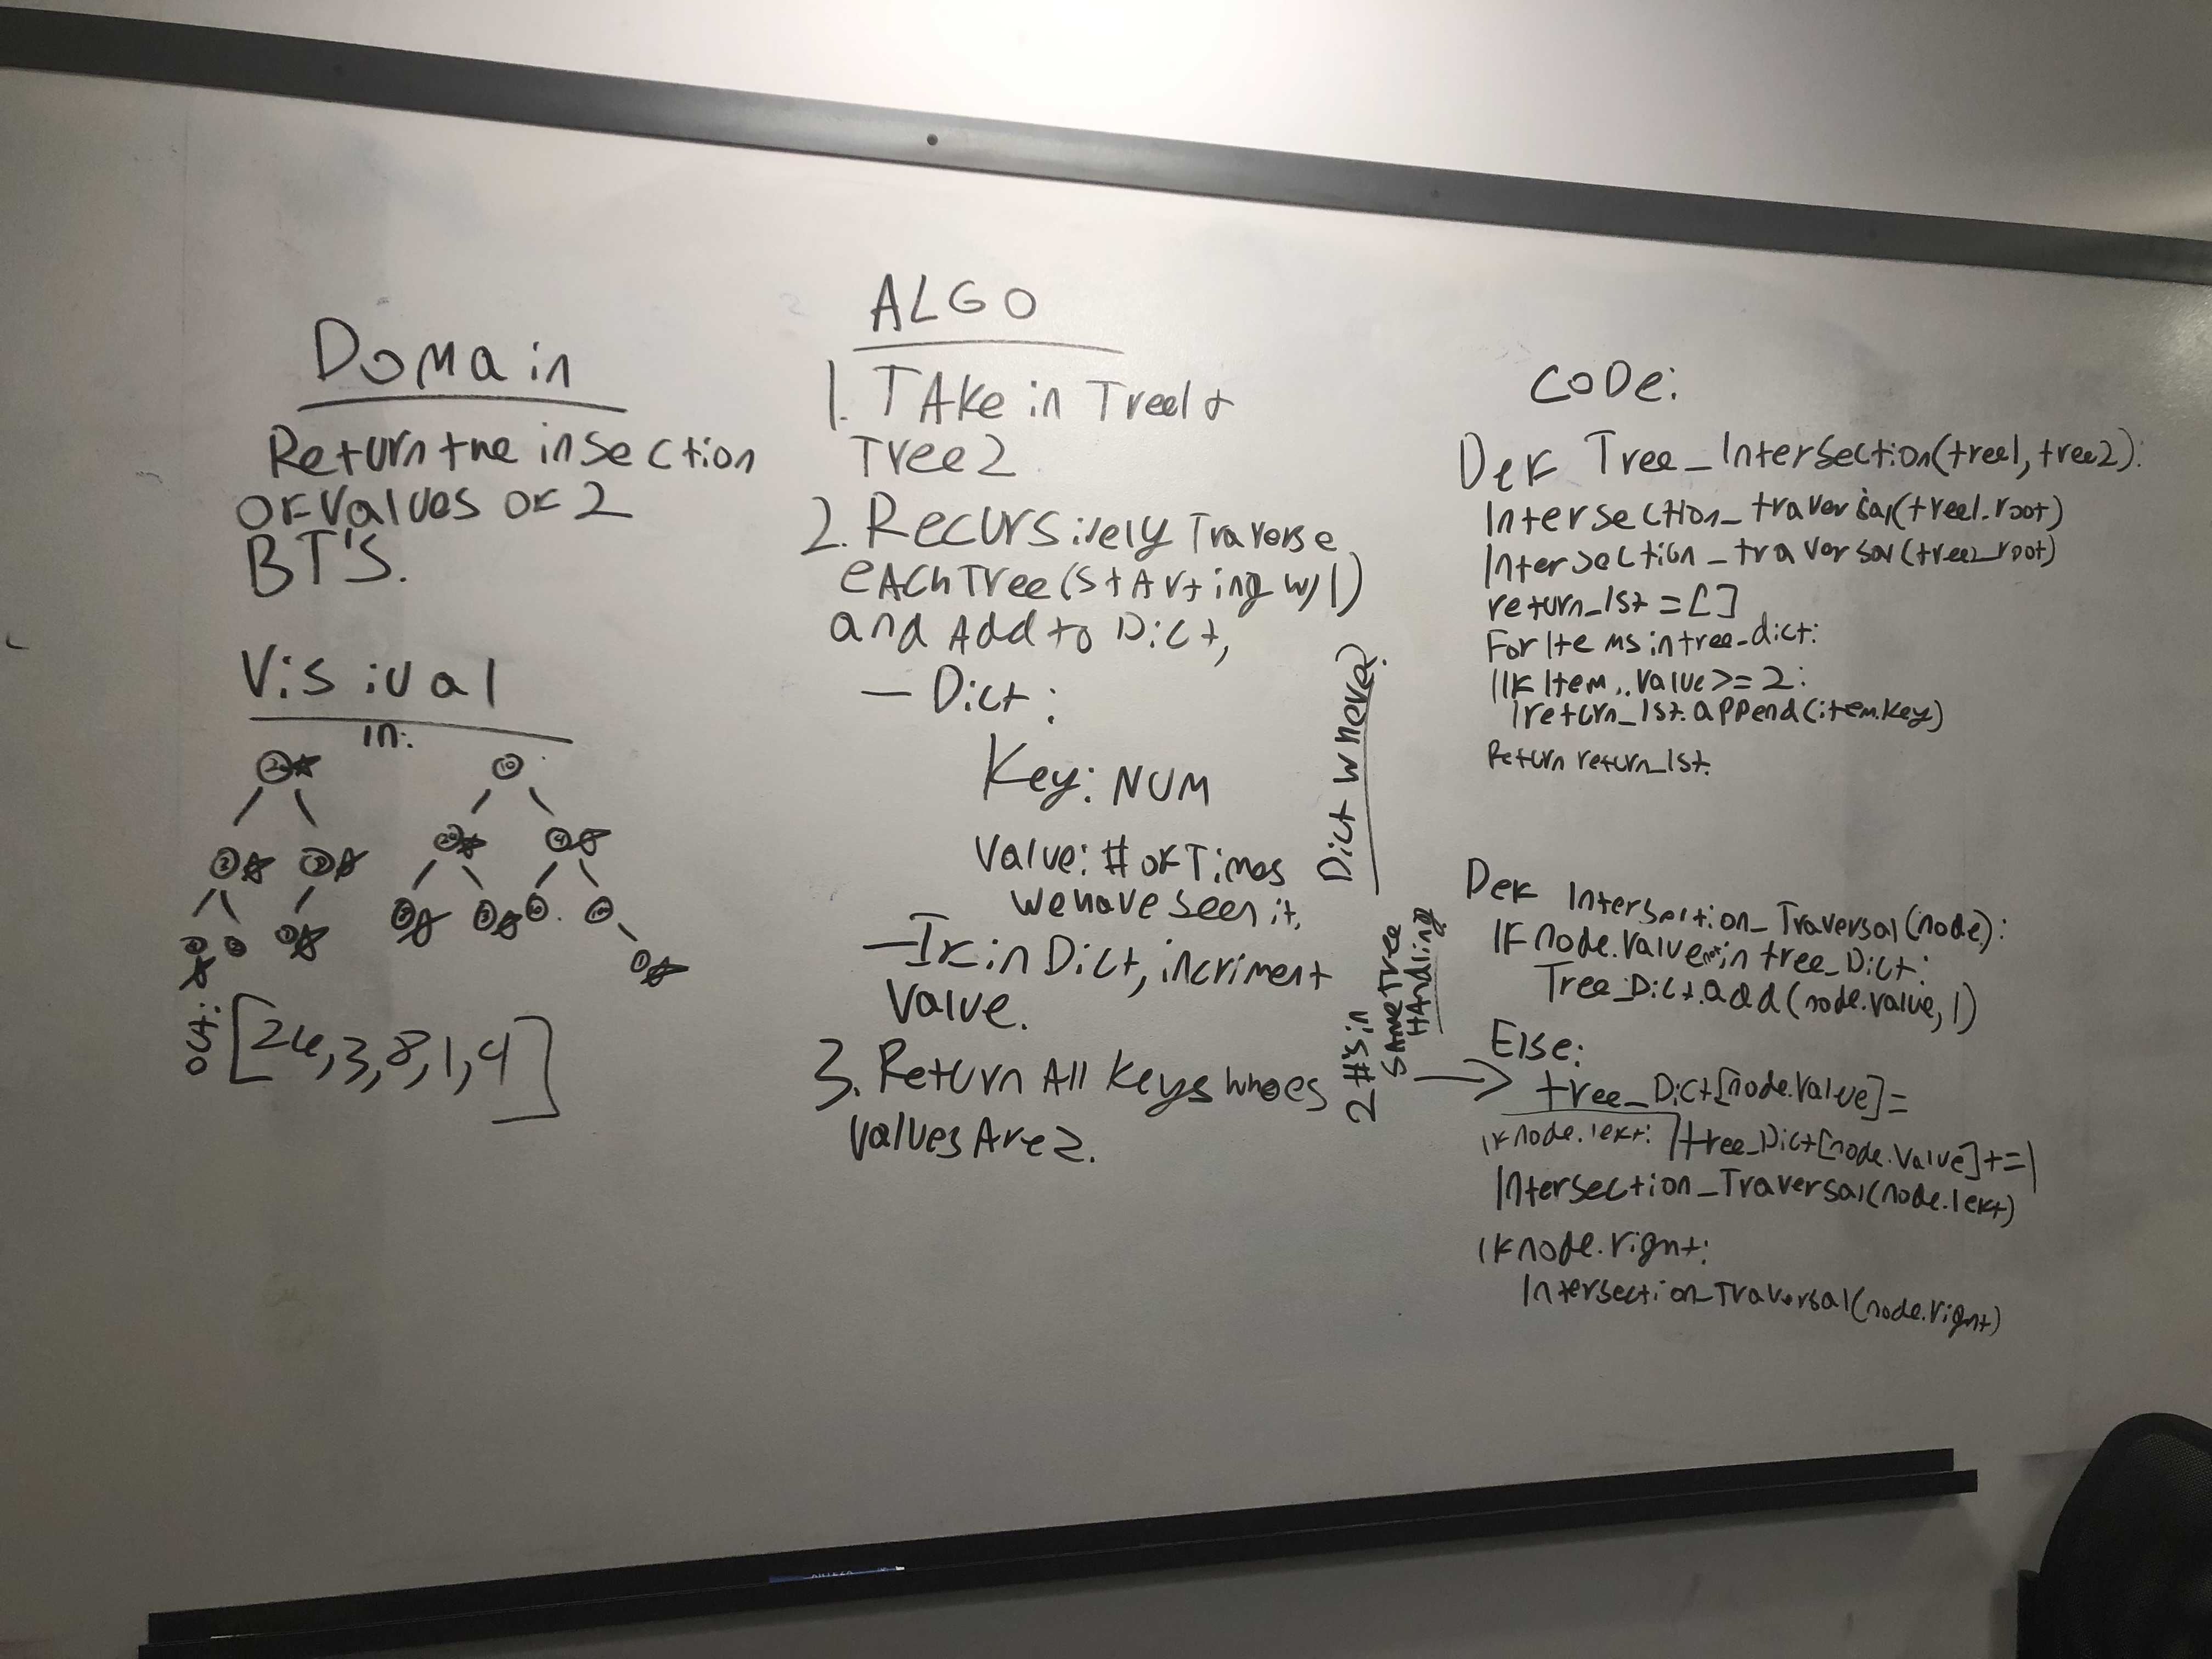 Domain
Return the insection
of values of 2
BT's.
Visiual
in:
10
out: [26,3,8,1,9]
ALGO
1. TAke in Tree1 &
Tree2
2. Recursively Traverse
eAch Tree (stArting w/ 1)
and Add to Dict,
- Dict:
Key: NUM
Value: # of Times
we have seen it,
- If in Dict, incriment
Value.
3. Return All Keys whoes
values Are 2.
Dict where?
2 #'s in
SAMe Tree
HAndling
CODe:
Def Tree_Intersection(tree1, tree2):
Intersection_traversal(tree1.root)
Intersection_traversal(tree2.root)
return_lst = []
For Items in tree_dict:
If Item.value >= 2:
return_lst.append(item.key)
Return return_lst.
Def Intersection_Traversal(node):
IF node.value not in tree_Dict:
Tree_Dict.add(node.value, 1)
Else:
tree_Dict[node.value] =
tree_Dict[node.value] += 1
If node.left:
Intersection_Traversal(node.left)
If node.right:
Intersection_Traversal(node.right)